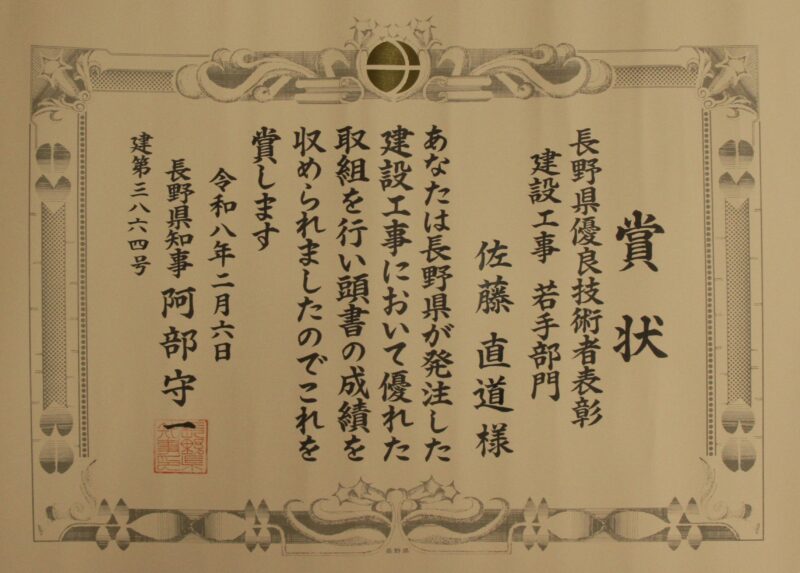 賞状
長野県優良技術者表彰
建設工事 若手部門
佐藤直道様
あなたは長野県が発注した
建設工事において優れた
取組を行い頭書の成績を
収められましたのでこれを
賞します
令和八年二月六日
長野県知事 阿部守一
建第三八六四号
長野県